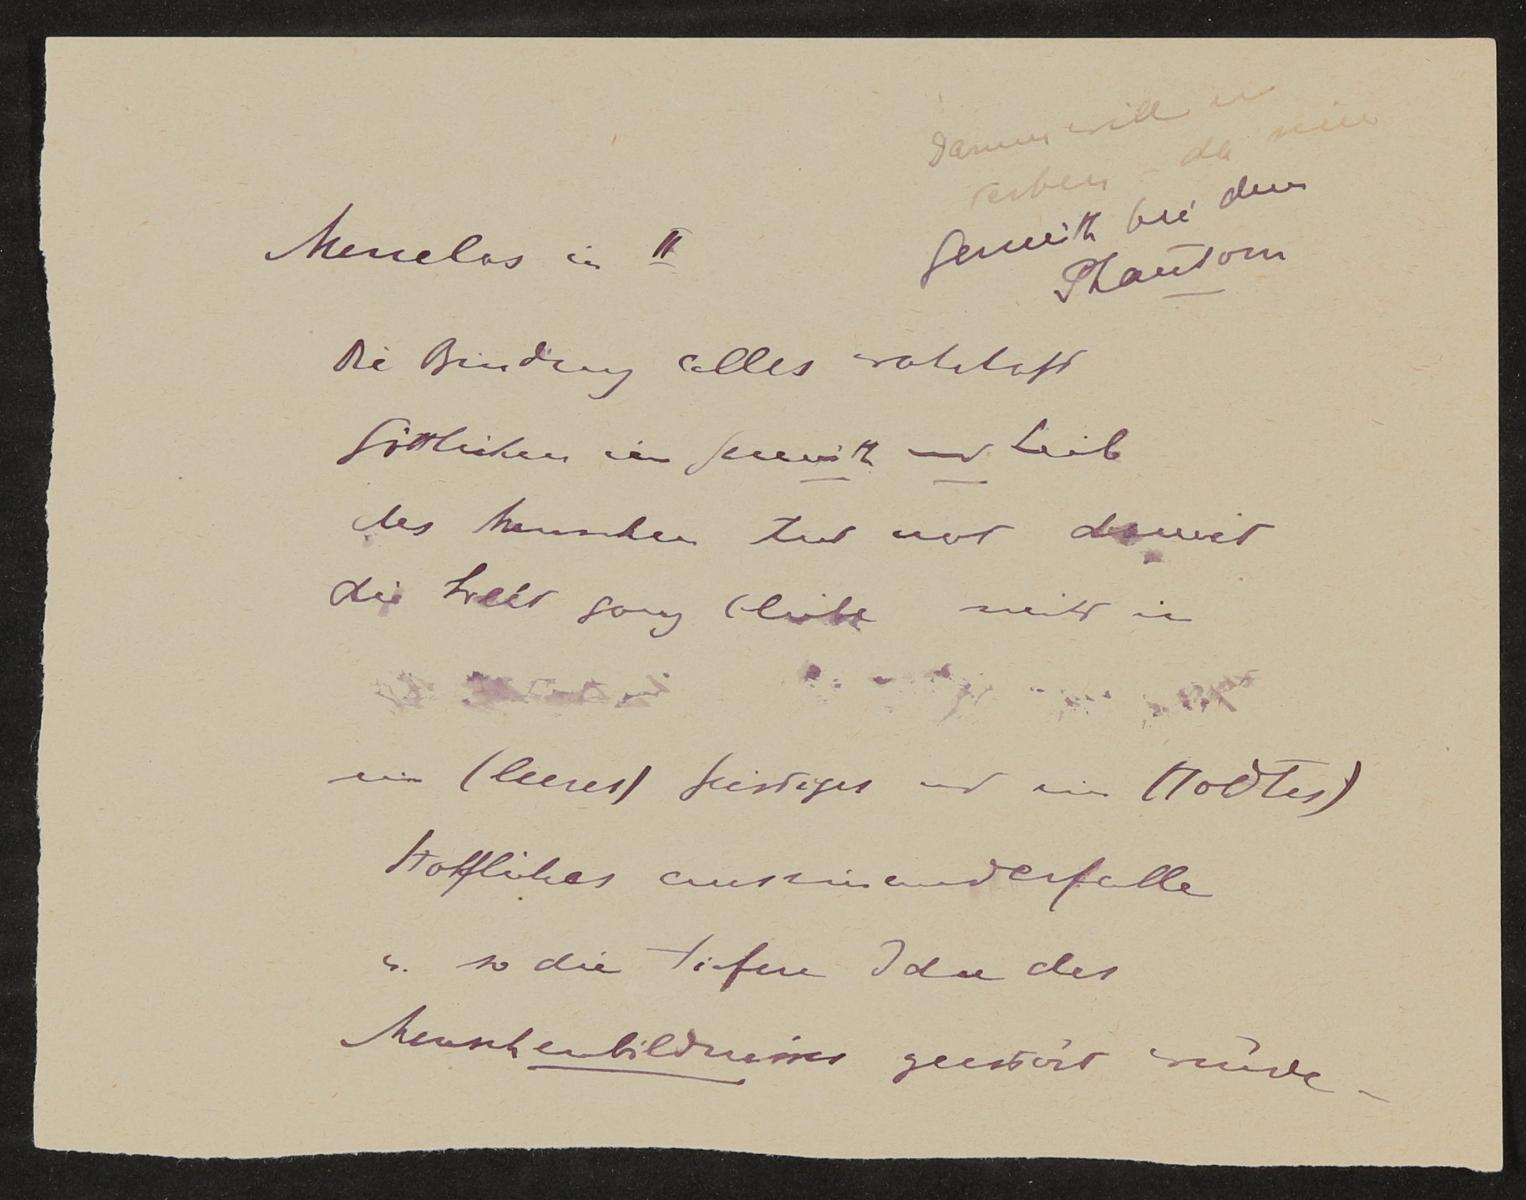 Darum will er
sterben da sein
Gemüth bei dem
Phantom
Menelas in II
Die Bindung alles wahrhaft
Göttlichen im Gemüth und Leib
des Menschen tut not damit
die Welt ganz bleibe nicht in
ein (leeres) Geistiges und ein (todtes)
Stoffliches auseinanderfalle
u. so die tiefere Idee des
Menschenbildnisses zerstört würde –